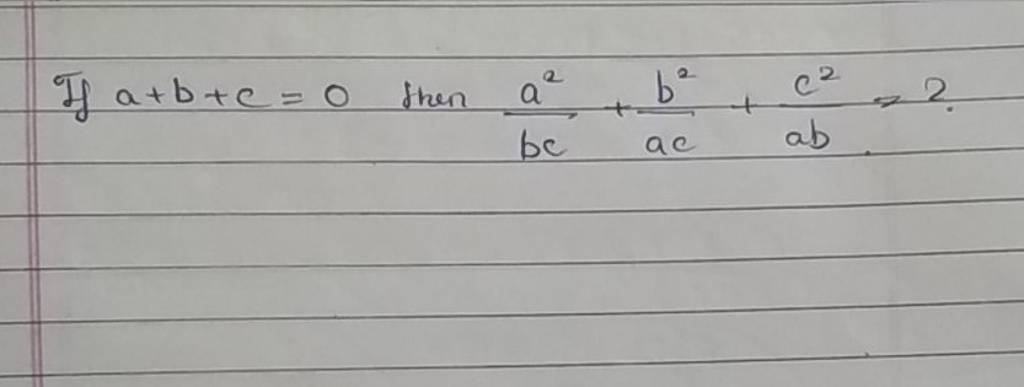 If a+b+c = 0 then a²/bc + b²/ac + c²/ab = ?